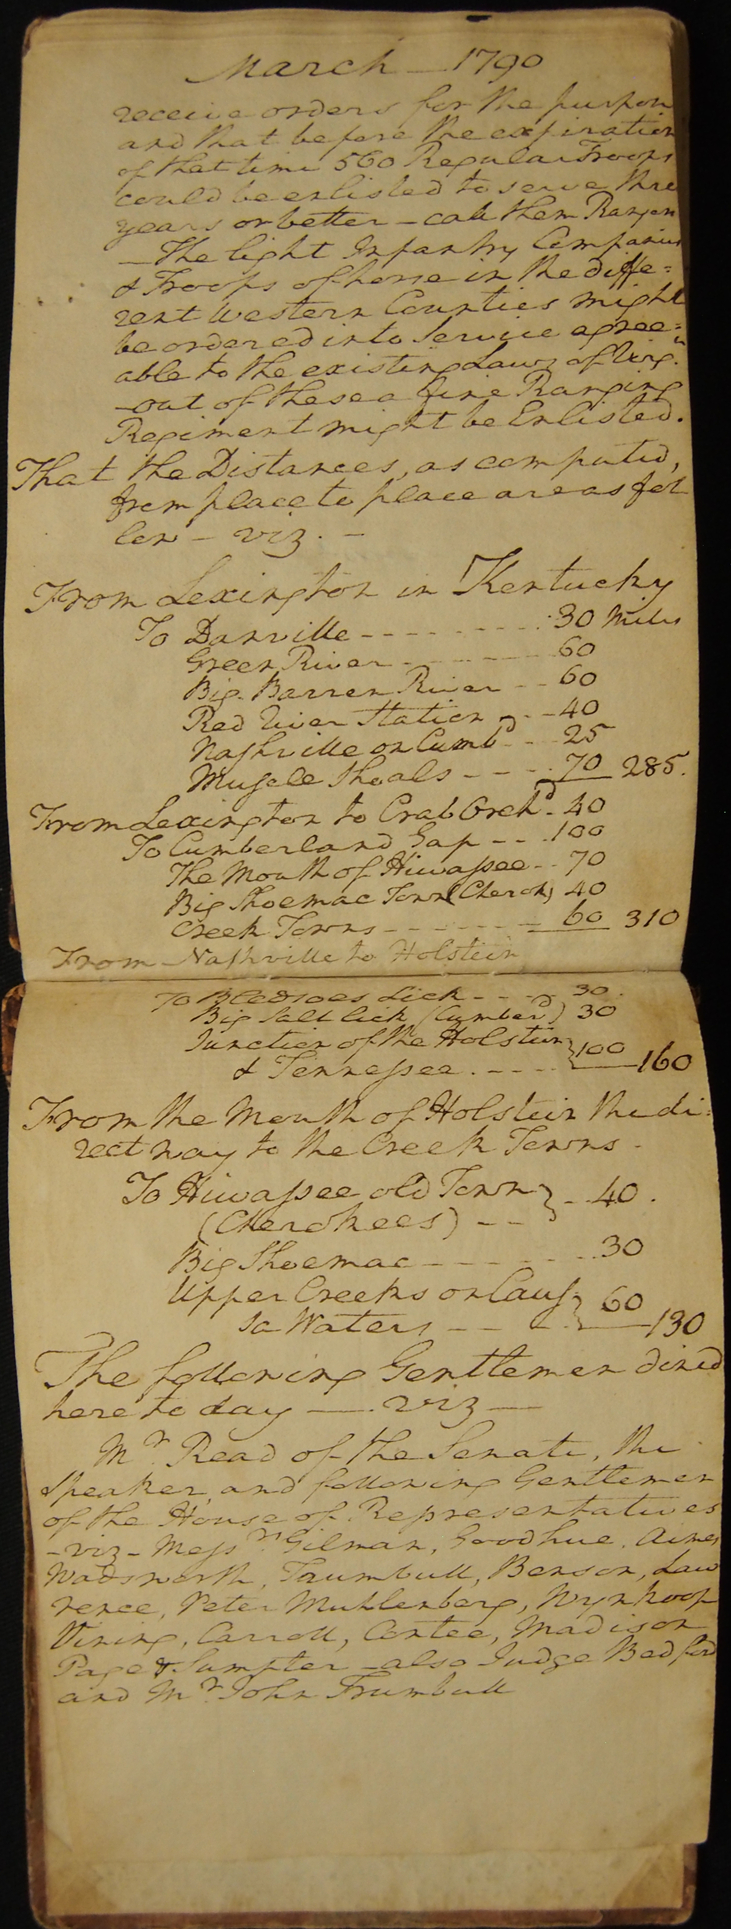 March — 1790
receive orders for the purpose
and that before the expiration
of that time 560 Regular Troops
could be enlisted to serve three
years or better — call them Rangers
— The light Infantry Companies
& Troops of horse in the diffe=
rent Western Counties might
be ordered into Service agree=
able to the existing Laws of Virga.
— out of these a fine Ranging
Regiment might be Enlisted.
That the Distances, as computed,
from place to place are as fol
low — viz. —
From Lexington in Kentucky
To Danville - - - - - - - - - 30 Miles
Green River - - - - - - - 60
Big Barren River - - 60
Red River Station - - 40
Nashville on Cumbd - - 25
Muscle Shoals - - - - 70 285.
From Lexington to Crab Orchd - 40
To Cumberland Gap - - - 100
The Mouth of Hiwassee - - 70
Big Shoemac Town (Cherok) 40
Creek Towns - - - - - - - 60 310
From Nashville to Holstein
To Bledsoes Lick - - - - 30.
Big Salt lick (Cumberd) 30
Junction of the Holstein }
& Tennessee. - - - - } 100 160
From the Mouth of Holstein the di=
rect way to the Creek Towns -
To Hiwassee old Town } - 40.
(Cherokees) - - }
Big Shoemac - - - - - - - 30
Upper Creeks on Cous }
sa Waters - - - - } 60 130
The following Gentlemen dined
here to day —— viz ——
Mr. Read of the Senate, the
Speaker, and following Gentlemen
of the House of Representatives
- viz - Messrs. Gilman, Goodhue, Aimes
Wadsworth, Trumbull, Benson, Law
rence, Peter Muhlenberg, Wynkoop
Vining, Carroll, Contee, Madison
Page & Sumpter — also Judge Bedford
and Mr. John Trumbull